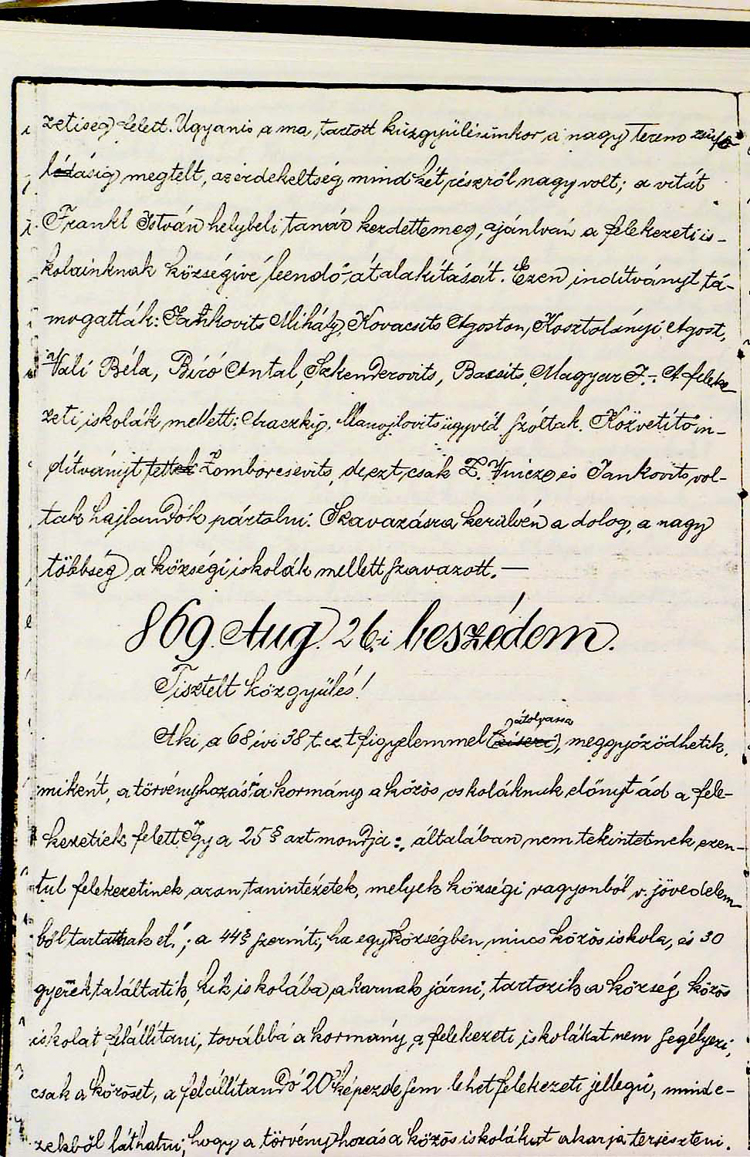 zetiség felett. Ugyanis a ma tartott közgyülésünkor a nagy Terem zsúfo-
lódásig megtelt, az érdekeltség mind két részről nagy volt; a vitát
Frankl István helybeli tanár kezdette meg, ajánlván a felekezeti is-
koláinknak községivé leendő átalakítását. Ezen indítványt tá-
mogatták: Jankovits Mihály, Kovacsits Agoston, Kosztolányi Agost,
Vali Béla, Biró Antal, Szkenderovits, Bacsits, Magyar J. - A feleke
zeti iskolák mellett: Manojlovits ügyvéd szóltak. Közvetitő in-
dítványt tettek Zomborcsevits, de ezt csak és Jankovits vol-
tak hajlandók pártolni. Szavazásra kerülvén a dolog, a nagy
többség a községi iskolák mellett szavazott. —
869 Aug. 26-i beszédem.
Tisztelt közgyülés!
Aki a 68 évi 38 t. cz-t figyelemmel átolvassa, meggyőződhetik,
miként, a törvényhozás s a kormány a közös oskoláknak előnyt ád a fele-
kezetiek felett. Igy a 25 § azt mondja: általában nem tekintetnek ezen-
tul felekezetinek azon tanintézetek, melyek községi vagyonból v. jövedelem
ből tartattnak el."; a 44 § szerint; ha egy községben nincs közös iskola, és 30
gyerek találtatik, kik iskolába akarnak járni, tartozik a község közös
iskolát felállitani, továbbá a kormány a felekezeti iskolákat nem segélyezi,
csak a közöset, a felállitandó 20 képezde sem lehet felekezeti jellegü, minde-
zekből láthatni, hogy a törvényhozás a közös iskolákat akarja terjeszteni.